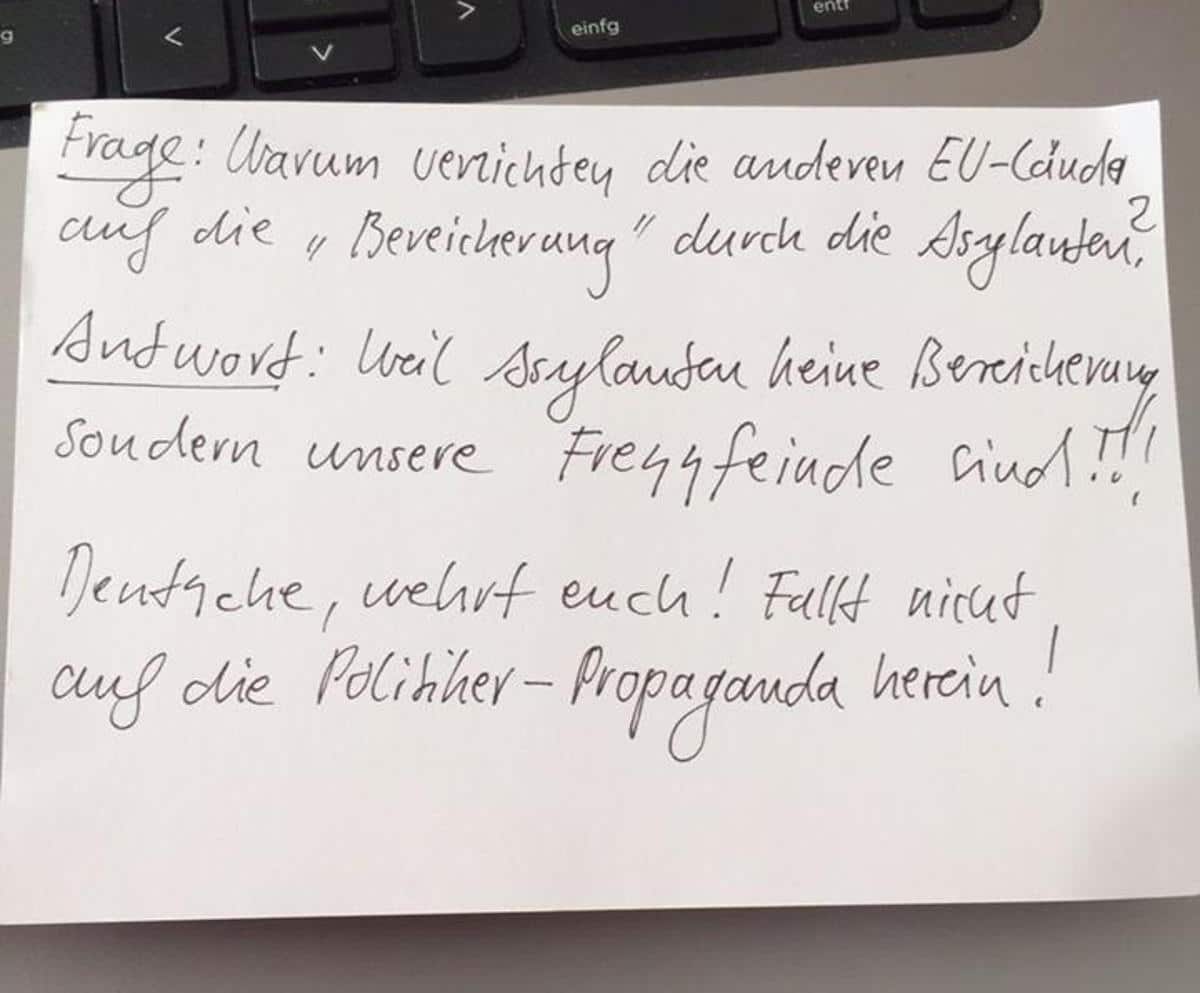 g
<
>
v
einfg
entf
Frage: Warum verzichten die anderen EU-Länder
auf die „Bereicherung" durch die Asylanten?
Antwort: Weil Asylanten keine Bereicherung,
sondern unsere Fressfeinde sind!!!!
Deutsche, wehrt euch! Fallt nicht
auf die Politiker-Propaganda herein!